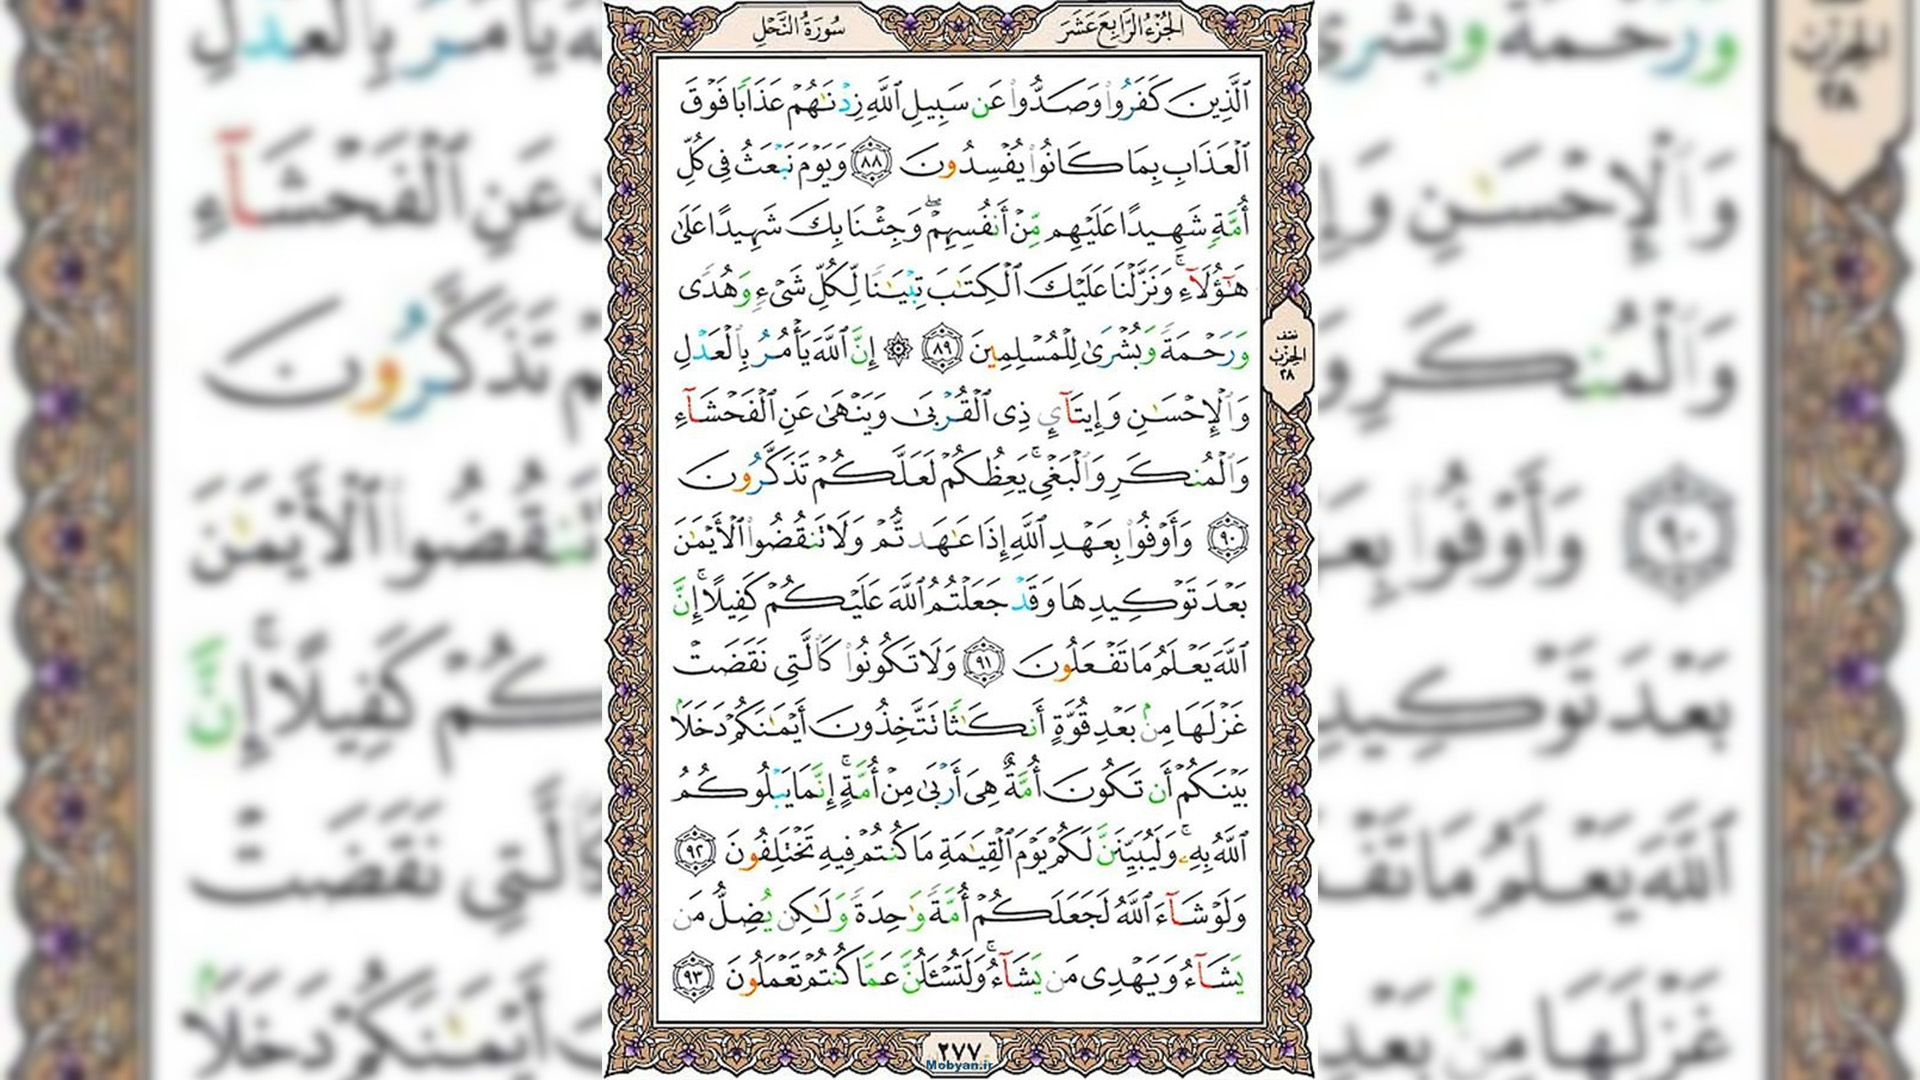 الجُزْءُ الرَّابِعَ عَشَرَ
سُورَةُ النَّحْلِ
ٱلَّذِينَ كَفَرُوا۟ وَصَدُّوا۟ عَن سَبِيلِ ٱللَّهِ زِدْنَٰهُمْ عَذَابًا فَوْقَ
ٱلْعَذَابِ بِمَا كَانُوا۟ يُفْسِدُونَ ٨٨ وَيَوْمَ نَبْعَثُ فِى كُلِّ
أُمَّةٍ شَهِيدًا عَلَيْهِم مِّنْ أَنفُسِهِمْ ۖ وَجِئْنَا بِكَ شَهِيدًا عَلَىٰ
هَٰٓؤُلَآءِ ۚ وَنَزَّلْنَا عَلَيْكَ ٱلْكِتَٰبَ تِبْيَٰنًا لِّكُلِّ شَىْءٍ وَهُدًى
وَرَحْمَةً وَبُشْرَىٰ لِلْمُسْلِمِينَ ٨٩ ۞ إِنَّ ٱللَّهَ يَأْمُرُ بِٱلْعَدْلِ
وَٱلْإِحْسَٰنِ وَإِيتَآئِ ذِى ٱلْقُرْبَىٰ وَيَنْهَىٰ عَنِ ٱلْفَحْشَآءِ
وَٱلْمُنكَرِ وَٱلْبَغْىِ ۚ يَعِظُكُمْ لَعَلَّكُمْ تَذَكَّرُونَ
٩٠ وَأَوْفُوا۟ بِعَهْدِ ٱللَّهِ إِذَا عَٰهَدتُّمْ وَلَا تَنقُضُوا۟ ٱلْأَيْمَٰنَ
بَعْدَ تَوْكِيدِهَا وَقَدْ جَعَلْتُمُ ٱللَّهَ عَلَيْكُمْ كَفِيلًا ۚ إِنَّ
ٱللَّهَ يَعْلَمُ مَا تَفْعَلُونَ ٩١ وَلَا تَكُونُوا۟ كَٱلَّتِى نَقَضَتْ
غَزْلَهَا مِنۢ بَعْدِ قُوَّةٍ أَنكَٰثًا تَتَّخِذُونَ أَيْمَٰنَكُمْ دَخَلًۢا
بَيْنَكُمْ أَن تَكُونَ أُمَّةٌ هِىَ أَرْبَىٰ مِنْ أُمَّةٍ ۚ إِنَّمَا يَبْلُوكُمُ
ٱللَّهُ بِهِۦ ۚ وَلَيُبَيِّنَنَّ لَكُمْ يَوْمَ ٱلْقِيَٰمَةِ مَا كُنتُمْ فِيهِ تَخْتَلِفُونَ ٩٢
وَلَوْ شَآءَ ٱللَّهُ لَجَعَلَكُمْ أُمَّةً وَٰحِدَةً وَلَٰكِن يُضِلُّ مَن
يَشَآءُ وَيَهْدِى مَن يَشَآءُ ۚ وَلَتُسْـَٔلُنَّ عَمَّا كُنتُمْ تَعْمَلُونَ ٩٣
نصف
الحزب
٢٨
٢٧٧
Mobyan.ir